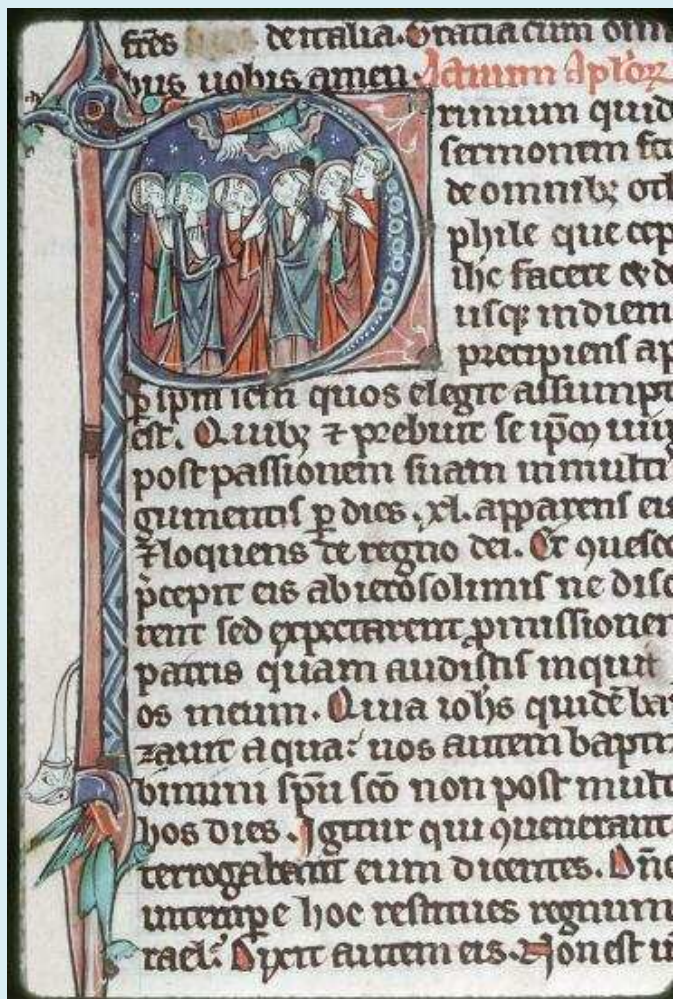 fr̃es de italia. Gratia cum om
bus uobis amen. Actuum Apl'oꝝ
rimum quid
sermonem fec
de omnibꝫ oth
phile que cep
ihc facere ⁊ do
usqꝫ in diem
precipiens ap
ꝑ sp̃m sc̃m quos elegit assumpt
est. Quibꝫ ⁊ prebuit se ip̃m uiu
post passionem suam in multi
gumentis ꝑ dies .xl. apparens eis
⁊ loquens de regno dei. Et ꝯuesce
p̃cepit eis ab ierosolimis ne disc
rent sed expectarent ꝓmissionem
patris quam audistis inquit
os meum. Quia ioh̃s quidẽ bap
zauit aqua: uos autem bapti
bimini sp̃u sc̃o non post mult
hos dies. Igitur qui ꝯuenerant
terrogabant eum dicentes. Dñe
in tempꝑe hoc restitues regnum
rael: Dixit autem eis. Non est u